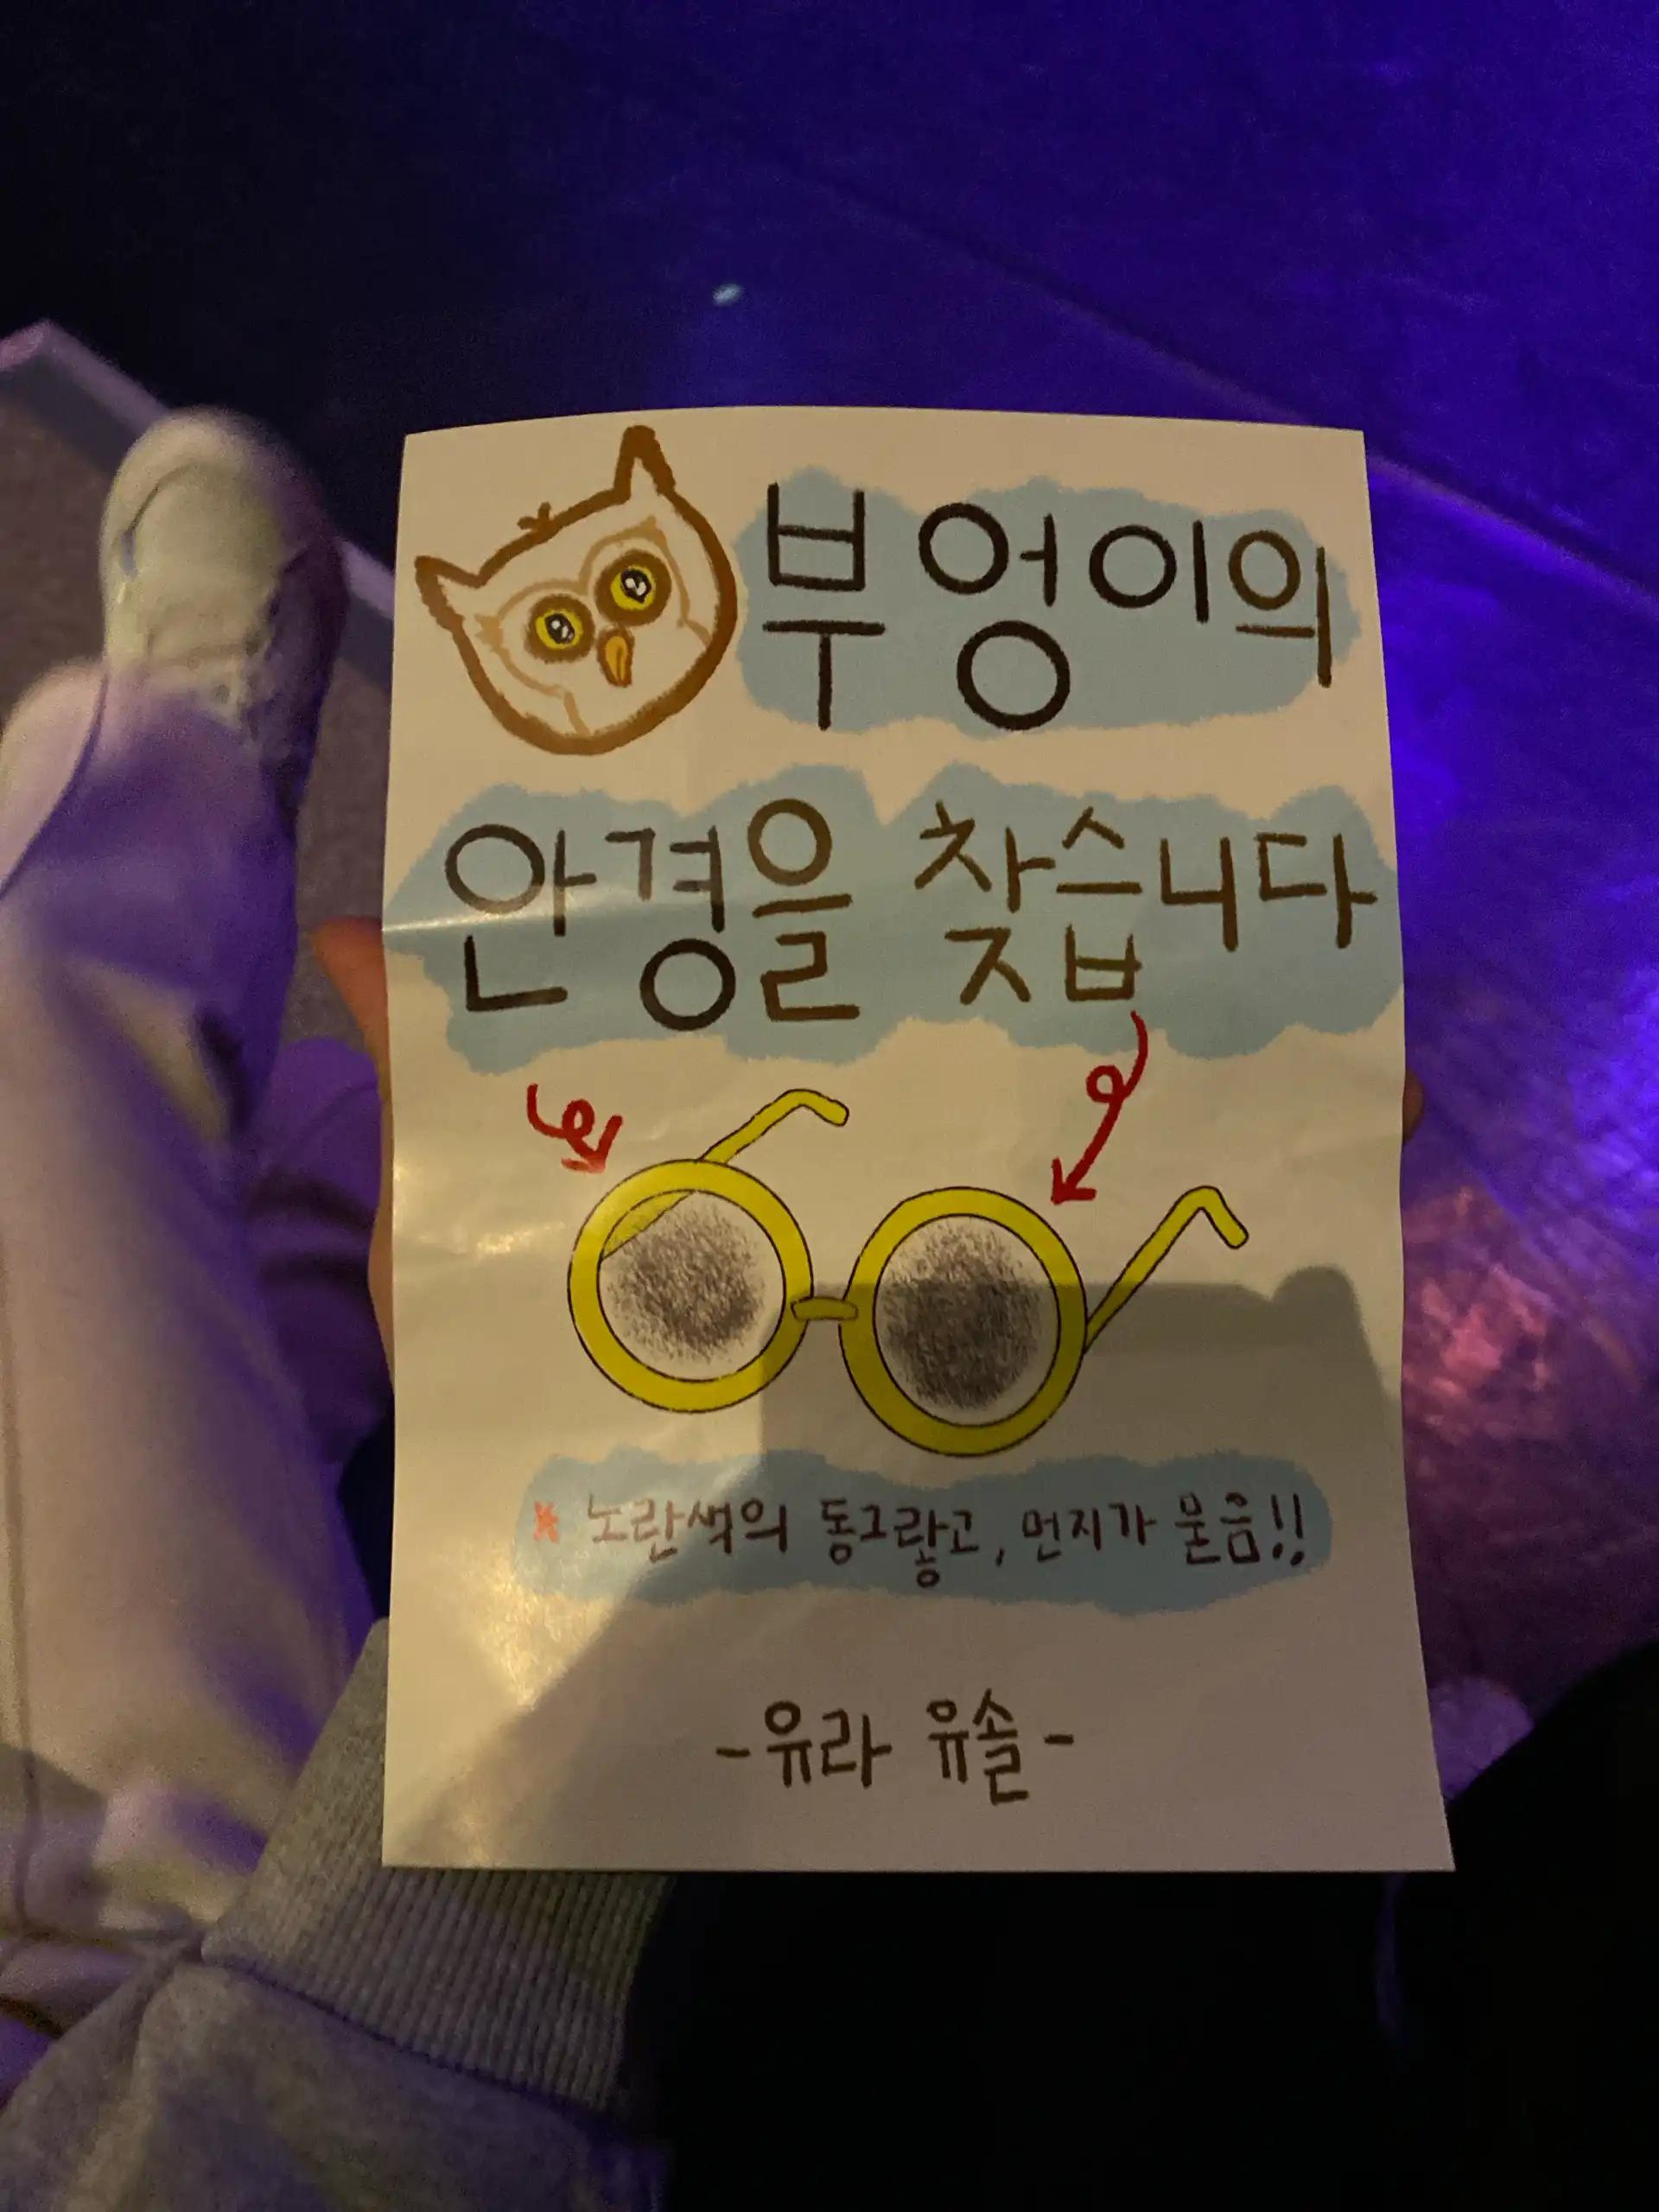 부엉이의
안경을 찾습니다
※ 노란색의 동그랗고, 먼지가 묻음!!
-유라 유솔-